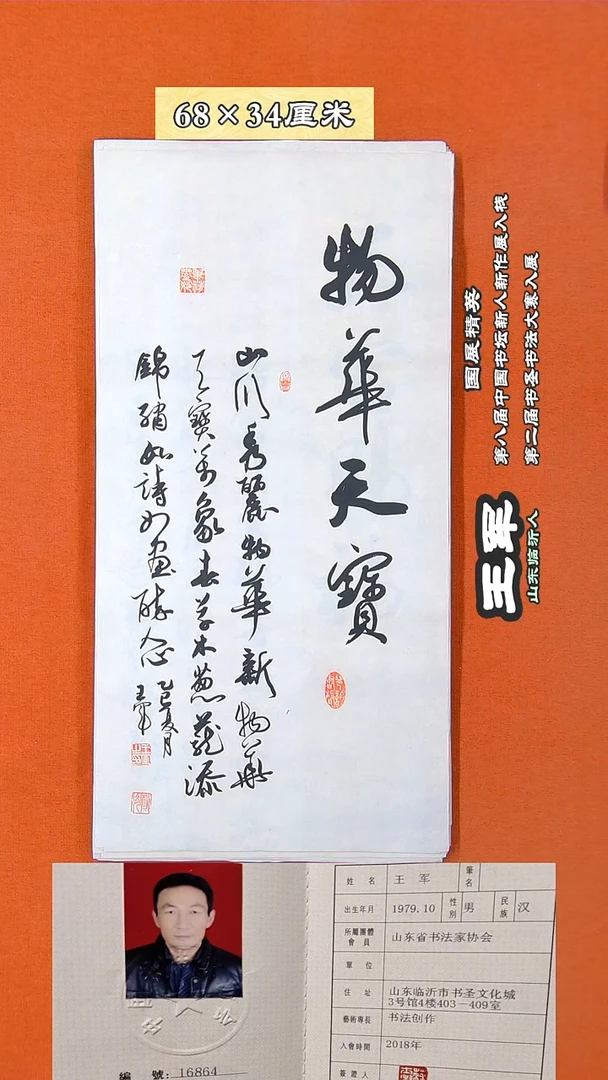 68×34厘米
物华天寶
山川秀麗物華新物華
天寶萬象春草木葱蘢添
錦繡如詩如畫醉人心
乙巳春月
王軍
国展精英
第八届中国书坛新人新作展入展
第二届书圣书法大赛入展
王军
山东临沂人
姓 名 王 军 筆名
出生年月 1979.10 性別 男 民族 汉
所屬團體會員 山东省书法家协会
單 位
住 址 山东临沂市书圣文化城3号馆4楼403-409室
藝術專長 书法创作
入會時間 2018年
簽證人
編 號: 16864